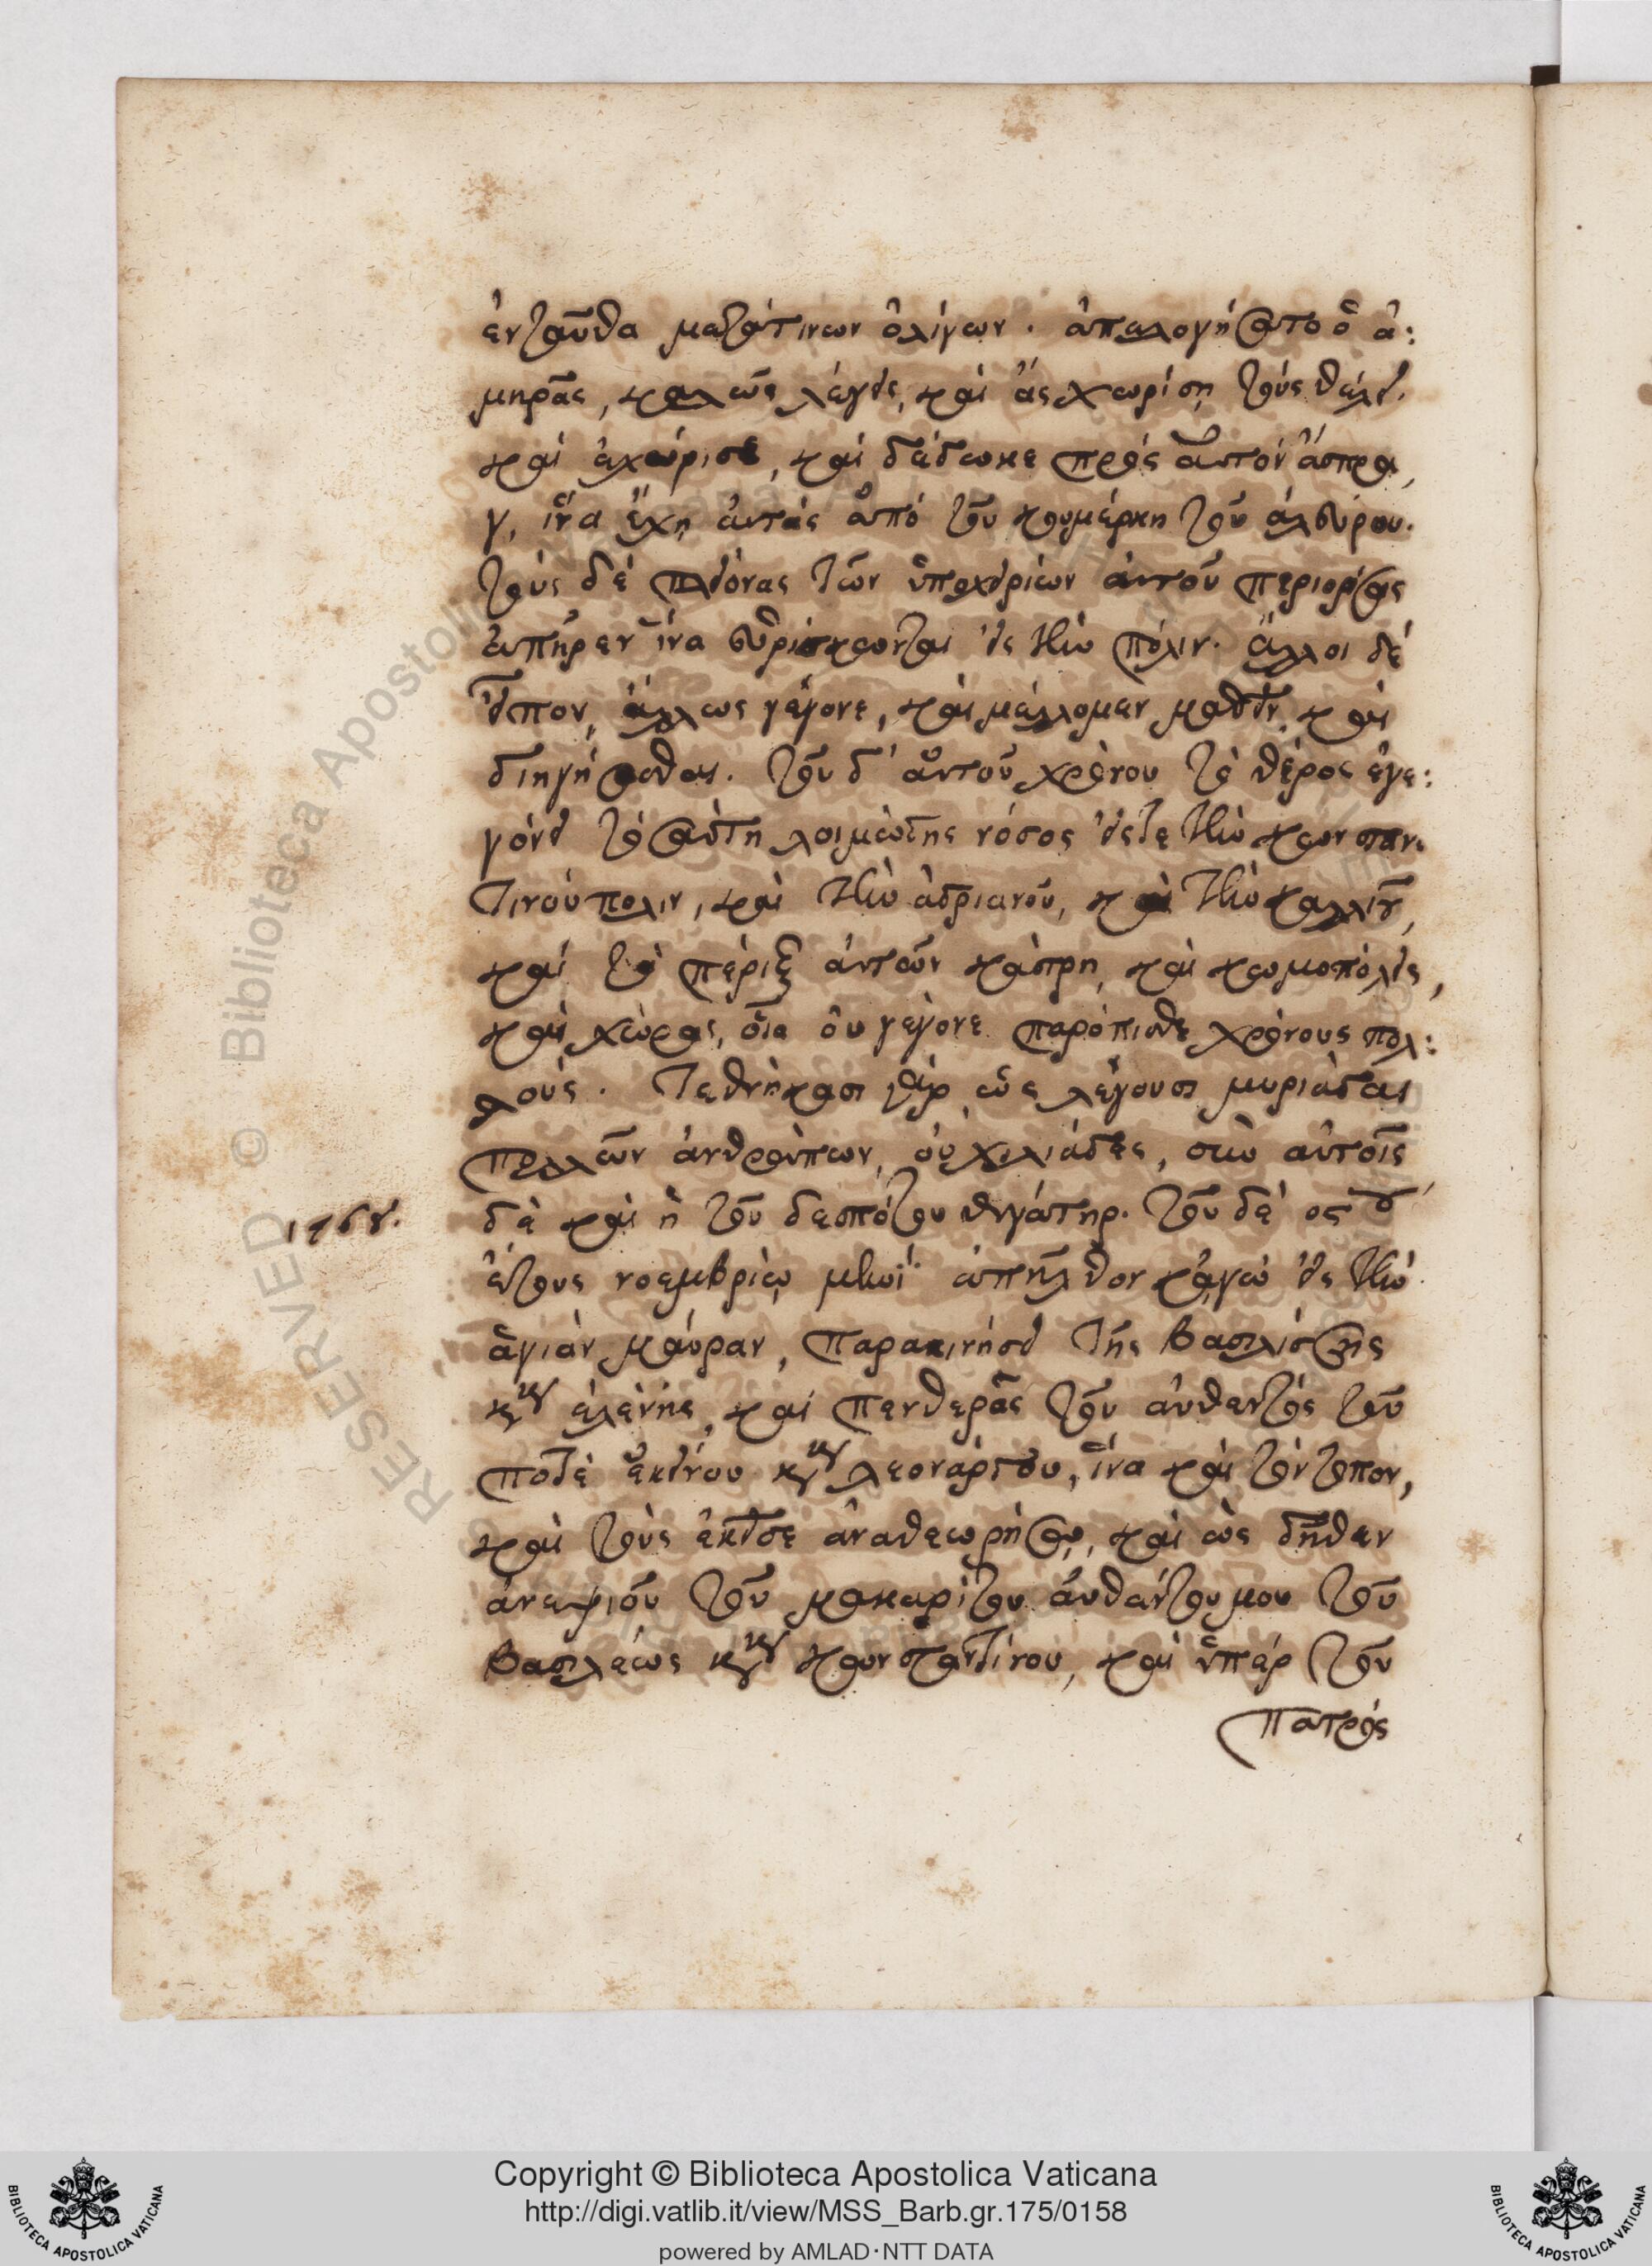 ἐνταῦθα μετά τινων ὀλίγων. ἀπελογήσατο ὁ ἀ:
μηρᾶς, καλῶς λέγεις, καὶ ἃς χωρίσῃ τοὺς θέλει.
καὶ ἐχώρισε, καὶ δέδωκε πρὸς αὐτὸν ἄσπρα,
γ, ἵνα ἔχῃ ἀυτὰς ἀπὸ τοῦ κουμέρκη τοῦ ἀλευρου.
τοὺς δὲ πλείονας τῶν ὑποχειρίων ἀυτοῦ περιορίσας
ἀπῆρεν ἵνα εὑρίσκωνται εἰς τὴν πόλιν. ἄλλοι δὲ
εἶπον, ἄλλως γέγονε, καὶ μέλλομεν μαθεῖν, καὶ
διηγήσασθαι. τοῦ δ' ἀυτοῦ χρόνου τὸ θέρος ἐγε:
γόνει τοσαύτη λοιμώδης νόσος εἴς τε τὴν κωνσταν.
τινούπολιν, καὶ τὴν ἀδριανοῦ, καὶ τὴν καλλιοῦ,
καὶ τὰ πέριξ ἀυτῶν κάστρη, καὶ κωμοπόλεις,
καὶ χώρας, οἷα οὐ γέγονε παρόπισθε χρόνους πολ:
λούς. Τεθνήκασι γὰρ ὡς λέγουσι μυριάδαι
πολλῶν ἀνθρώπων, οὐ χιλιάδες, σὺν αὐτοῖς
δὲ καὶ ἡ τοῦ δεσπότου θυγάτηρ. τοῦ δὲ ος ου
ἔτους νοεμβρίῳ μηνὶ ἀπῆλθον κἀγὼ εἰς τὴν
ἁγίαν μαύραν, παρακινήσει τῆς βασιλίσσης
κυ ἑλένης, καὶ πενθερᾶς τοῦ αὐθεντὸς τοῦ
ποτὲ ἐκείνου κυ λεονάρδου, ἵνα καὶ τὸν τόπον,
καὶ τοὺς ἐκεῖσε ἀναθεωρήσω, καὶ ὡς δῆθεν
ἀνεψιοῦ τοῦ μακαρίτου αὐθέντου μου τοῦ
βασιλέως κυ κωνσταντίνου, καὶ ὑπὲρ τοῦ
πατρὸς
Copyright © Biblioteca Apostolica Vaticana
http://digi.vatlib.it/view/MSS_Barb.gr.175/0158
powered by AMLAD·NTT DATA
BIBLIOTECA APOSTOLICA VATICANA
BIBLIOTECA APOSTOLICA VATICANA